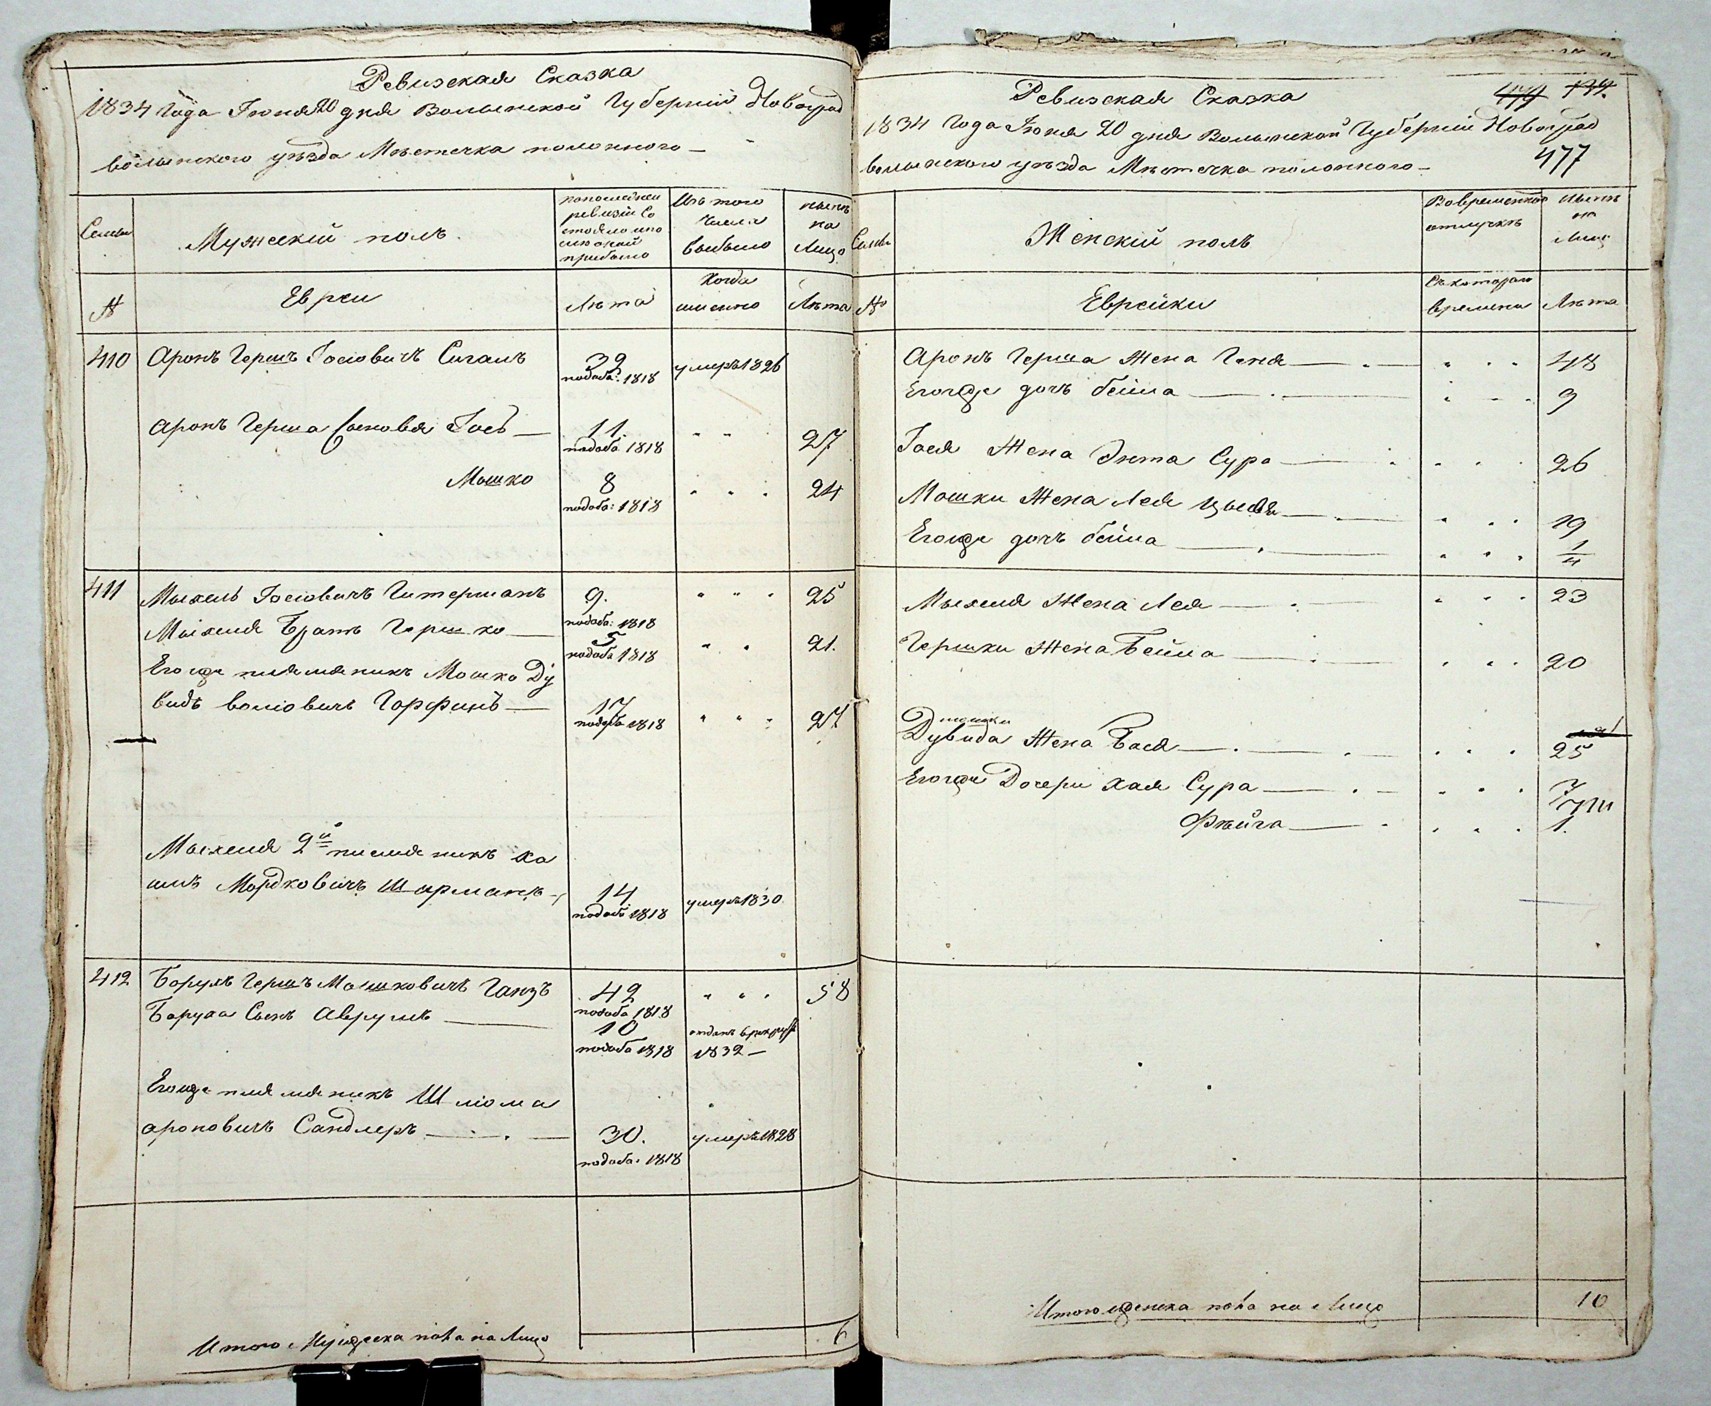 Ревизская Сказка
1834 года Июня 20 дня Волынской Губернии Новоград
волынского уезда Местечка полонного
Семьи
Мужеский полъ
по последней
ревизии Со
стояло и по
сле оной
прибыло
Изъ того
числа
выбыло
ныне
на
Лицо
№
Евреи
Лета
Когда
именно
Лета
410 Аронъ Гершъ Иосиовичъ Сигалъ 32 умеръ 1826
по доба: 1818
Аронъ Герша Сыновья Иось 11. " " 27
по доба 1818
Мошко 8 " " " 24
по доба: 1818
411 Мыхель Иосиовичъ Гитерманъ 9. " " " 25
по доба: 1818
Мыхеля Братъ Гершко 5 " " 21.
по доба 1818
Его же племяникъ Мошко Ду
видъ волиовичъ Горфинъ 17 " " " 27
по доба 1818
Мыхеля 2й племяникъ Ха
имъ Мордковичъ Шарманъ 14 умеръ 1830
по доба 1818
412 Борухъ Гершъ Мошковичъ Ганзъ 42 " " " 58
по доба 1818
Боруха Сынъ Аврумъ 10 отданъ в рекруты
по доба 1818 1832
Его же племяникъ Шліома
ароновичъ Сандлеръ 30. умеръ 1828
по доба: 1818
Итого Мужеска пола на Лицо 6
Ревизская Сказка
479
1834 Года Июня 20 дня Волынской Губернии Новоград
477
волынского уезда Местечка полонного
Семьи
Женский полъ
Во временной
отлучке
Ныне
на
Лицо
№
Еврейки
Съ которого
времени
Лета
Аронъ Герша Жена Геня " " " 48
Его же дочь бейла " " " 9
Иося Жена Энта Сура " " " 26
Мошки Жена Лея Цывья " " " 19
Его же дочь бейла " " " 1/4
Мыхеля Жена Лея " " " 23
Гершки Жена Бейла " " " 20
мошки
Дувида Жена Бася " " " 25
Его же Дочери Хая Сура " " " 7
Фейга " " " 1.
Итого женска пола на Лицо 10